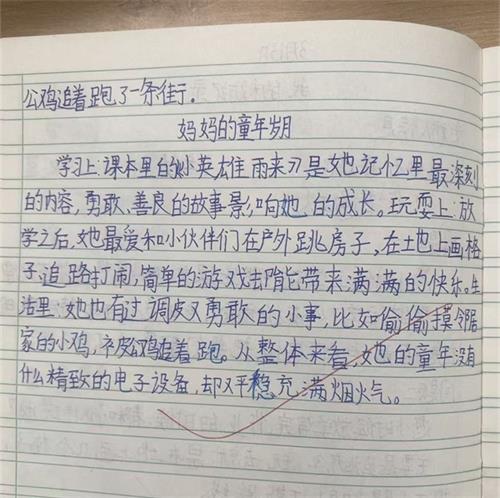 公鸡追着跑了一条街.
妈妈的童年岁月
学习上:课本里的小英雄雨来刃是她记忆里最深刻
的内容,勇敢、善良的故事影响她的成长。玩耍上:放
学之后,她最爱和小伙伴们在户外跳房子,在土地上画格
子,追路打闹,简单的游戏却能带来满满的快乐。生
活里:她也有过调皮又勇敢的小事,比如偷偷摸邻居
家的小鸡,被公鸡追着跑。从整体来看,她的童年没有
什么精致的电子设备,却又平稳充满烟火气。